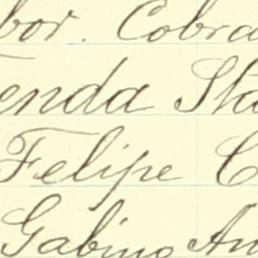 bor. Cobra
enda Sta
Felipe C
Gabino An